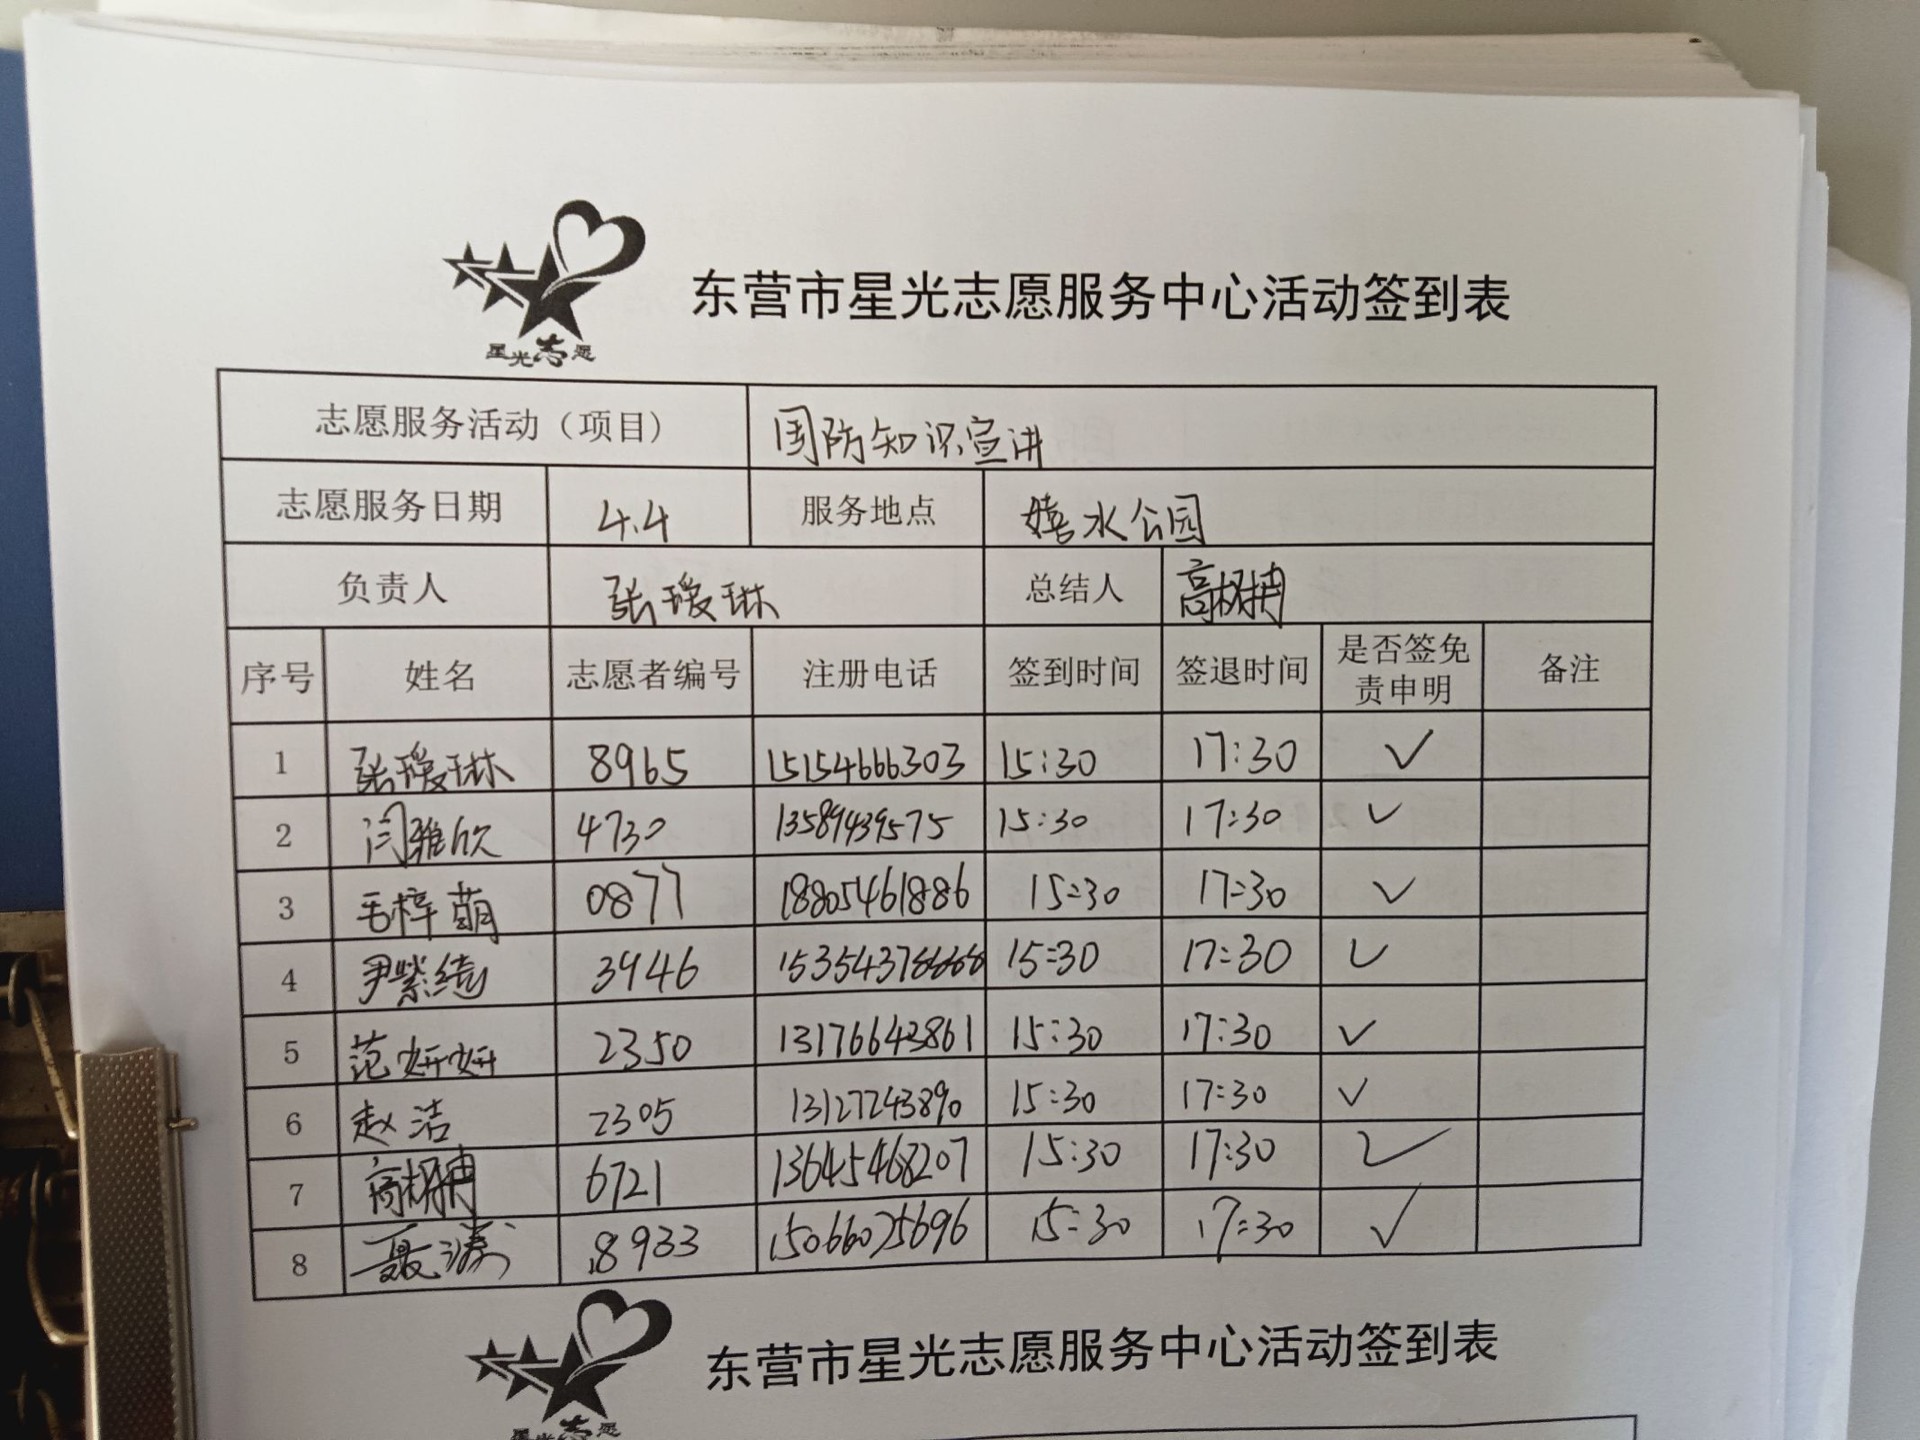 星光志愿
东营市星光志愿服务中心活动签到表
志愿服务活动（项目） 国防知识宣讲
志愿服务日期 4.4 服务地点 嬉水公园
负责人 张瑷琳 总结人 高
序号 姓名 志愿者编号 注册电话 签到时间 签退时间 是否签免责申明 备注
1 张瑷琳 8965 15154666303 15:30 17:30 ✓
2 闫雅欣 4730 13589439575 15:30 17:30 ✓
3 毛梓萌 0877 18805461886 15:30 17:30 ✓
4 尹紫绮 3946 15:30 17:30 ✓
5 范妍妍 2350 13176643861 15:30 17:30 ✓
6 赵洁 2305 13127243890 15:30 17:30 ✓
7 高 6721 13645468207 15:30 17:30 ✓
8 聂涛 8933 15066075696 15:30 17:30 ✓
东营市星光志愿服务中心活动签到表
星光志愿